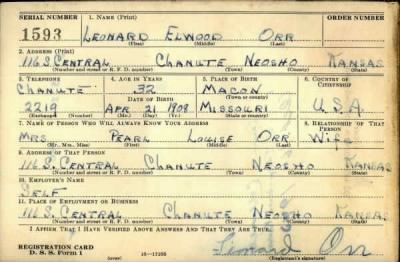 SERIAL NUMBER 1. NAME (Print) ORDER NUMBER
1593 LEONARD ELWOOD ORR
(First) (Middle) (Last)
2. ADDRESS (Print)
116 S. CENTRAL CHANUTE NEOSHO KANSAS
(Number and street or R. F. D. number) (Town) (County) (State)
3. TELEPHONE 4. AGE IN YEARS 5. PLACE OF BIRTH 6. COUNTRY OF CITIZENSHIP
CHANUTE 32 MACON
DATE OF BIRTH (Town or county)
2219 APR 21 1908 MISSOURI U.S.A.
(Exchange) (Number) (Mo.) (Day) (Yr.) (State or country)
7. NAME OF PERSON WHO WILL ALWAYS KNOW YOUR ADDRESS 8. RELATIONSHIP OF THAT PERSON
MRS PEARL LOUISE ORR WIFE
(Mr., Mrs., Miss) (First) (Middle) (Last)
9. ADDRESS OF THAT PERSON
116 S. CENTRAL CHANUTE NEOSHO KANSAS
(Number and street or R. F. D. number) (Town) (County) (State)
10. EMPLOYER'S NAME
SELF
11. PLACE OF EMPLOYMENT OR BUSINESS
116 S. CENTRAL CHANUTE NEOSHO KANSAS
(Number and street or R. F. D. number) (Town) (County) (State)
I AFFIRM THAT I HAVE VERIFIED ABOVE ANSWERS AND THAT THEY ARE TRUE.
REGISTRATION CARD Leonard Orr
D. S. S. Form 1 (over) (Registrant's signature)